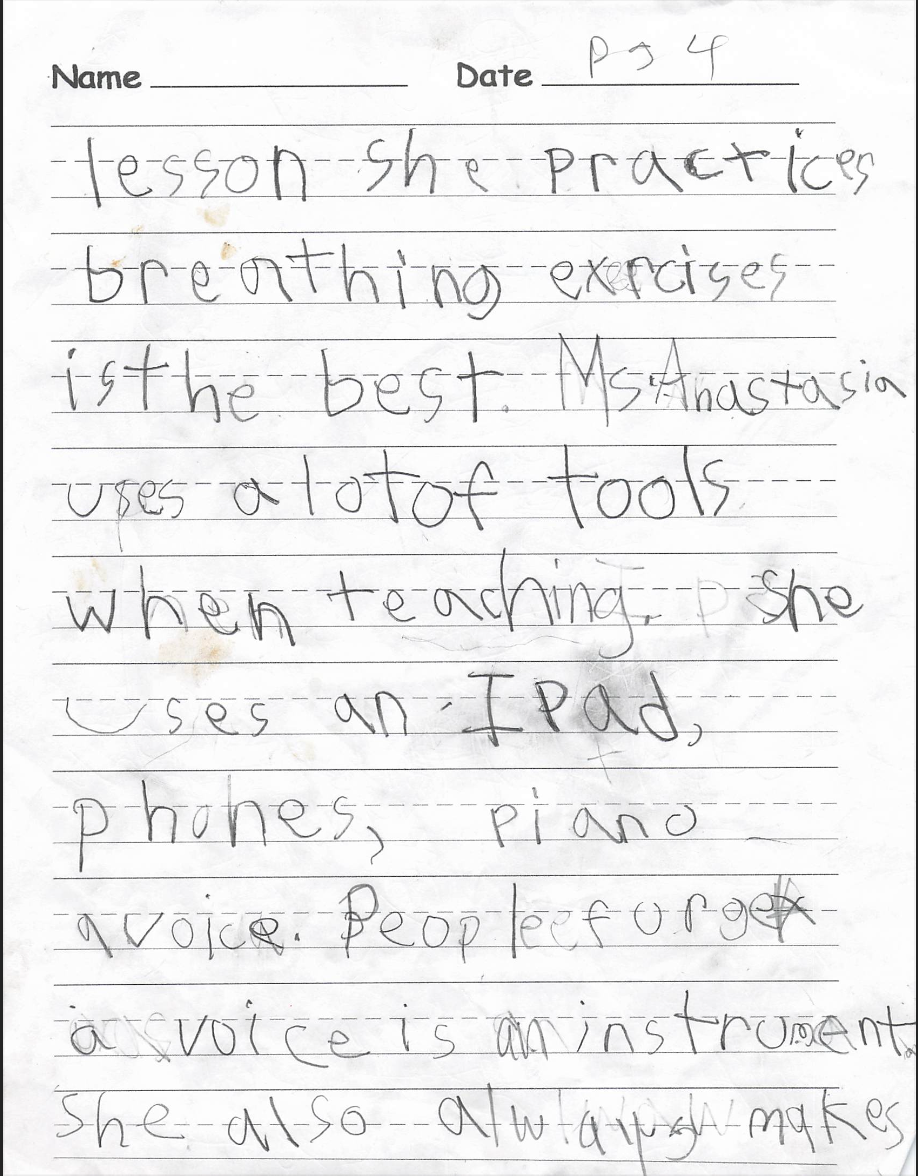 Name Date pg 4
lesson she practices
breathing exercises
is the best. Ms. Anastasia
uses a lot of tools
when teaching. She
uses an IPad,
phones, piano
a voice. People forget
a voice is an instrument.
She also always makes